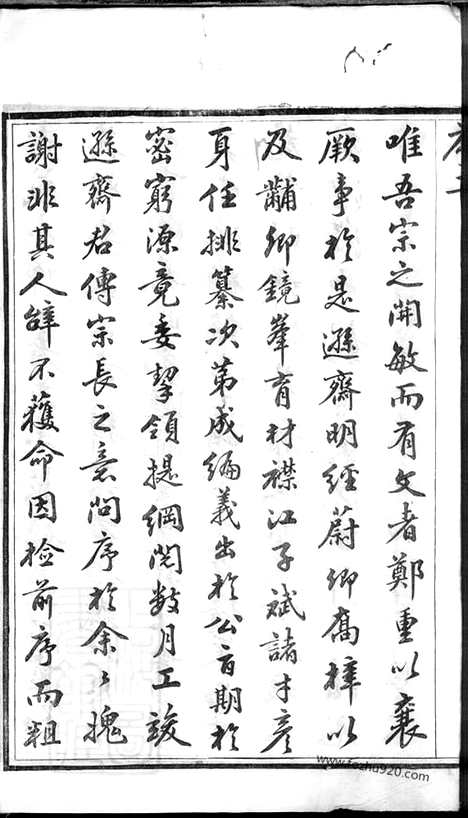 唯吾宗之開敏而有文者鄭重以襄
厥事於是遜齋明經蔚卿喬梓以
及黼卿鏡峯育材襟江子斌諸才彥
身任排纂次第成編義出於公言期於
密窮源竟委挈領提綱閱數月工竣
遜齋君傳宗長之意問序於余余愧
謝非其人辭不獲命因檢前序而粗
www.fozhu920.com